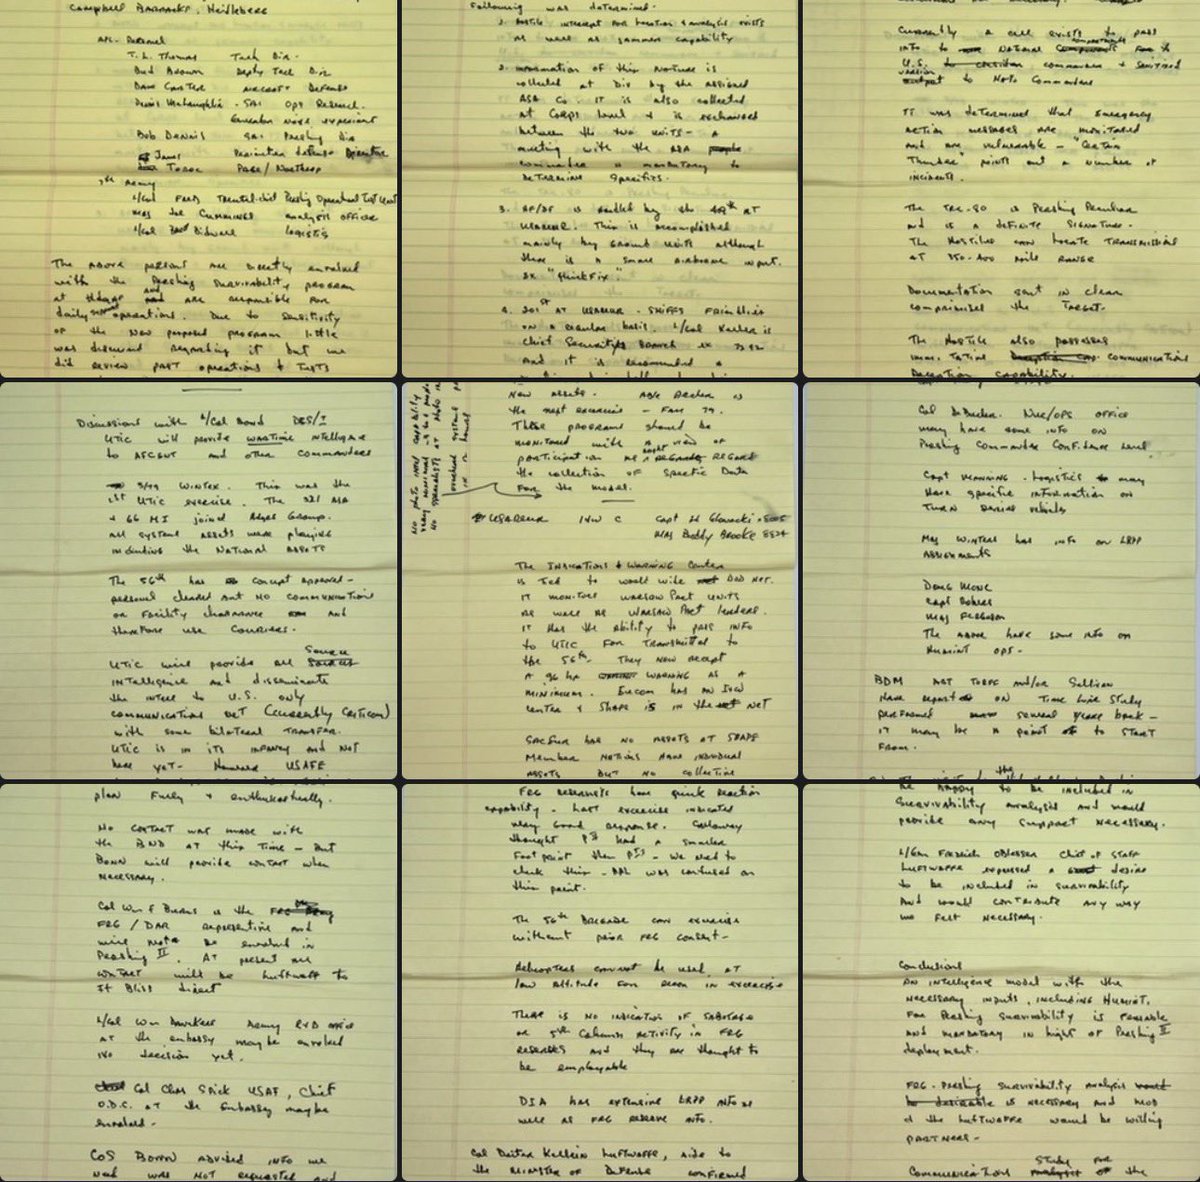 Campbell Barracks, Heidleberg
APL. Personel
T. L. Thomas Tech Dir.
Bud Brown Depty Tech Dir
Dave Carter Aircraft Defense
Dennis McLaughlin - SAI Ops Research.
Bob Dennis SAI Pershing Dir
James Perimeter defense Director
Pare / Northrop
7th Army
L/Col Fred
Maj Joe Cummings analysis officer
L/Col Bidwell Logistics
The above persons are directly involved
with the Pershing survivability program
at Hdqs and are responsible for
daily operations. Due to sensitivity
of the new proposed program little
was discussed regarding it but we
did review past operations & Tests
Following was determined.
1. Hostile intercept for location & analysis exists
as well as jammer capability
2. information of this nature is
collected at Div by the assigned
ASA Co. it is also collected
at Corps level & is exchanged
between the two units - a
meeting with the ASA
commander is mandatory to
Determine specifics.
3. RF/DF is handled by the at
USAREUR. This is accomplished
mainly by ground units although
there is a small airborne input.
ex "Quick Fix"
4. 201st AT USAREUR - Sniffs Friendlies
on a regular basis. L/Col Keller is
chief Security Branch ex
and it is recommended a
Currently a cell exists to pass
info to National components
U.S. commanders & sanitized
version to Nato Commanders
It was determined that emergency
action messages are monitored
and are vulnerable - "Certain
Thunder" points out a number of
incidents.
The TRC-80 is Pershing Peculiar
and is a definite signature.
The Hostiles can locate Transmissions
at 350-400 mile range
Documentation sent in clear
compromises the Target.
The Hostile also possesses
Deception cap. communications
Deception capability.
Discussions with L/Col Bond DES/I
UTIC will provide wartime intelligence
to AFCENT and other commanders
3/79 Wintex. This was the
1st UTIC exercise. The ASA
& 66 MI joined
all system assets were playing
including the National Assets
The 56th has concept approval -
personel cleared but no communications
or facility clearance and
therefore use couriers.
UTIC will provide all source
intelligence and disseminate
the intel to U.S. only
communications net (currently Criticom)
with some bilateral transfer.
UTIC is in its infancy and not
here yet - However USAFE
New assets. Able Archer is
the next exercise - Fall 79.
These programs should be
monitored with a view of
participation as regards regard
the collection of specific Data
for the model.
USAREUR I&W C Capt
Maj Buddy Brooke
The Indications & Warning Center
is tied to world wide DOD net.
it monitors Warsaw Pact units
as well as Warsaw Pact leaders.
it has the ability to pass info
to UTIC for transmittal to
the 56th. They now accept
a 96 hr warning as a
minimum. Eucom has an I&W
center & Shape is in the net
SACEUR has no assets at SHAPE
Member nations have individual
assets but no collective
Col DeBecker. Nuc/Ops office
may have some info on
Pershing Commander Confidence level
Capt Manning - Logistics may
have specific information on
Turn around vehicles
Maj Winters has info on LRRP
assignments
Doug Moye
Maj Ferguson
The above have some info on
Humint ops -
BDM and/or Sullivan
have report on Time Line Study
performed several years back -
it may be a point to start
from.
plan fully & enthusiastically.
No contact was made with
the BND at this time - but
Bonn will provide contact when
necessary.
Col Wm F Burns is the
FRG / DAR representive and
will not be involved in
Pershing II. At present all
contact will be Luftwaffe to
Ft Bliss direct
L/Col Wm Hawkins Army R&D office
at the embassy may be involved
no decision yet.
Col Chas Spick USAF, Chief
O.D.C. at the Embassy may be
involved -
COS Bonn advised into we
need was not requested and
FRG reservists have quick reaction
capability - last exercise indicated
very good response. Calloway
thought PII had a smaller
foot print then PI - We need to
check this - APL was confused on
this point.
The 56th Brigade can exercise
without prior FRG consent -
Helicopters cannot be used at
low altitude for recon in exercise
There is no indication of sabotage
or 5th Column activity in FRG
reserves and they are thought to
be employable
DIA has extensive LRRP info as
well as FRG reserve info.
Col Dieter Kellein Luftwaffe, aide to
the minister of Defense confirmed
be happy to be included in the
Survivability analysis and would
provide any support necessary.
L/Gen Fredrich Oblesser Chief of Staff
Luftwaffe expressed a desire
to be included in survivability
and would contribute any way
we felt necessary.
Conclusions
An intelligence model with the
necessary inputs, including Humint,
for Pershing survivability is feasable
and mandatory in light of Pershing II
deployment.
FRG - Pershing survivability analysis would
be desirable is necessary and MOD
& the Luftwaffe would be willing
partners -
Communications Study for the